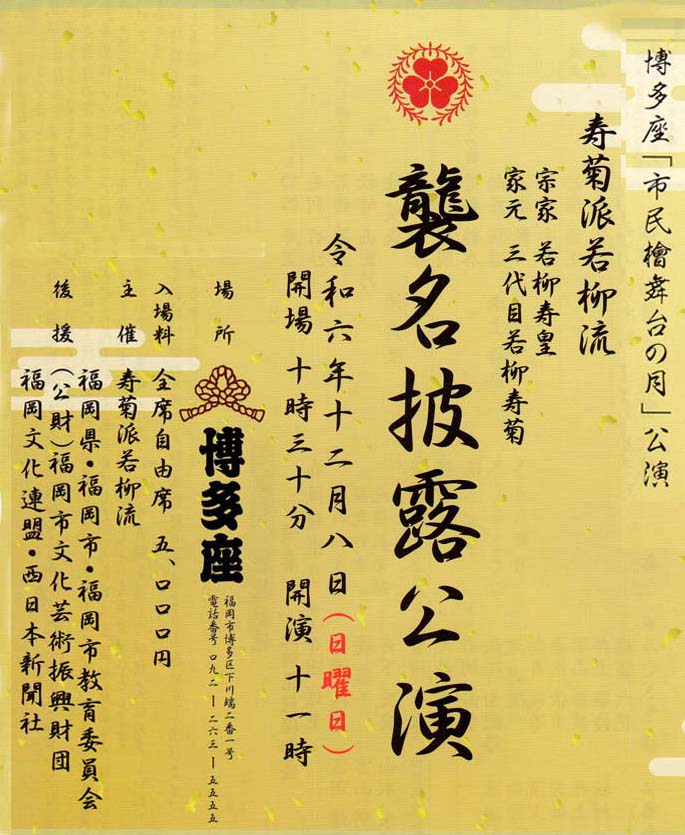 博多座「市民檜舞台の月」公演
寿菊派若柳流
宗家 若柳寿皇
家元 三代目若柳寿菊
襲名披露公演
令和六年十二月八日(日曜日)
開場 十時三十分 開演 十一時
場所
博多座
福岡市博多区下川端二番一号
電話番号 〇九二ー二六三ー五五五五
入場料 全席自由席 五、〇〇〇円
主催 寿菊派若柳流
後援 福岡県・福岡市・福岡市教育委員会
(公財)福岡市文化芸術振興財団
福岡文化連盟・西日本新聞社